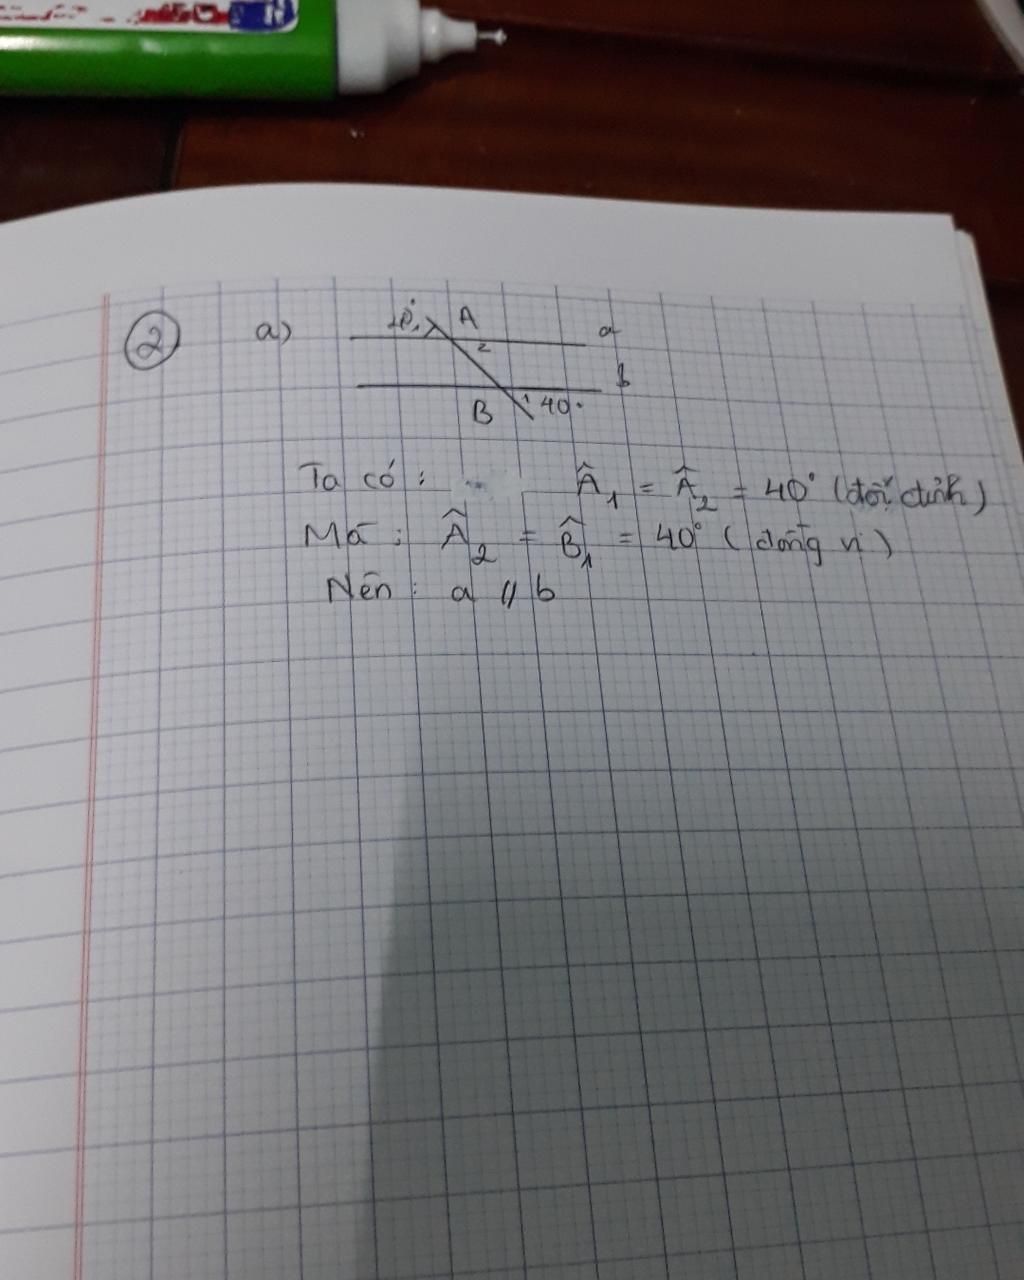 2 a)
A
2
a
b
B 1 40°
Ta có : Â₁ = Â₂ = 40° (đối đỉnh)
Mà : Â₂ = B̂₁ = 40° (đồng vị)
Nên : a // b